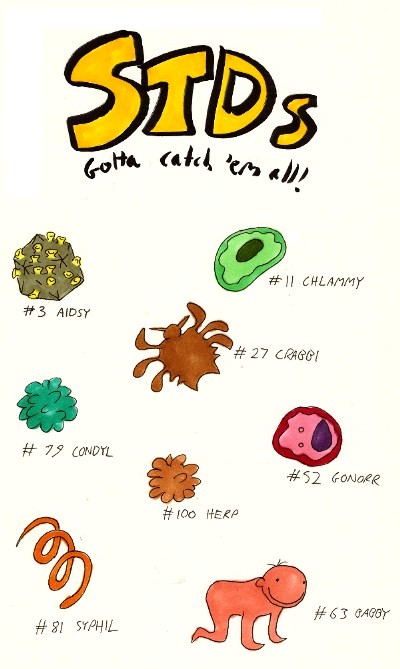 STDs
Gotta catch 'em all!
#3 AIDSY
#11 CHLAMMY
#27 CRABBI
#79 CONDYL
#52 GONORR
#100 HERP
#81 SYPHIL
#63 BABBY